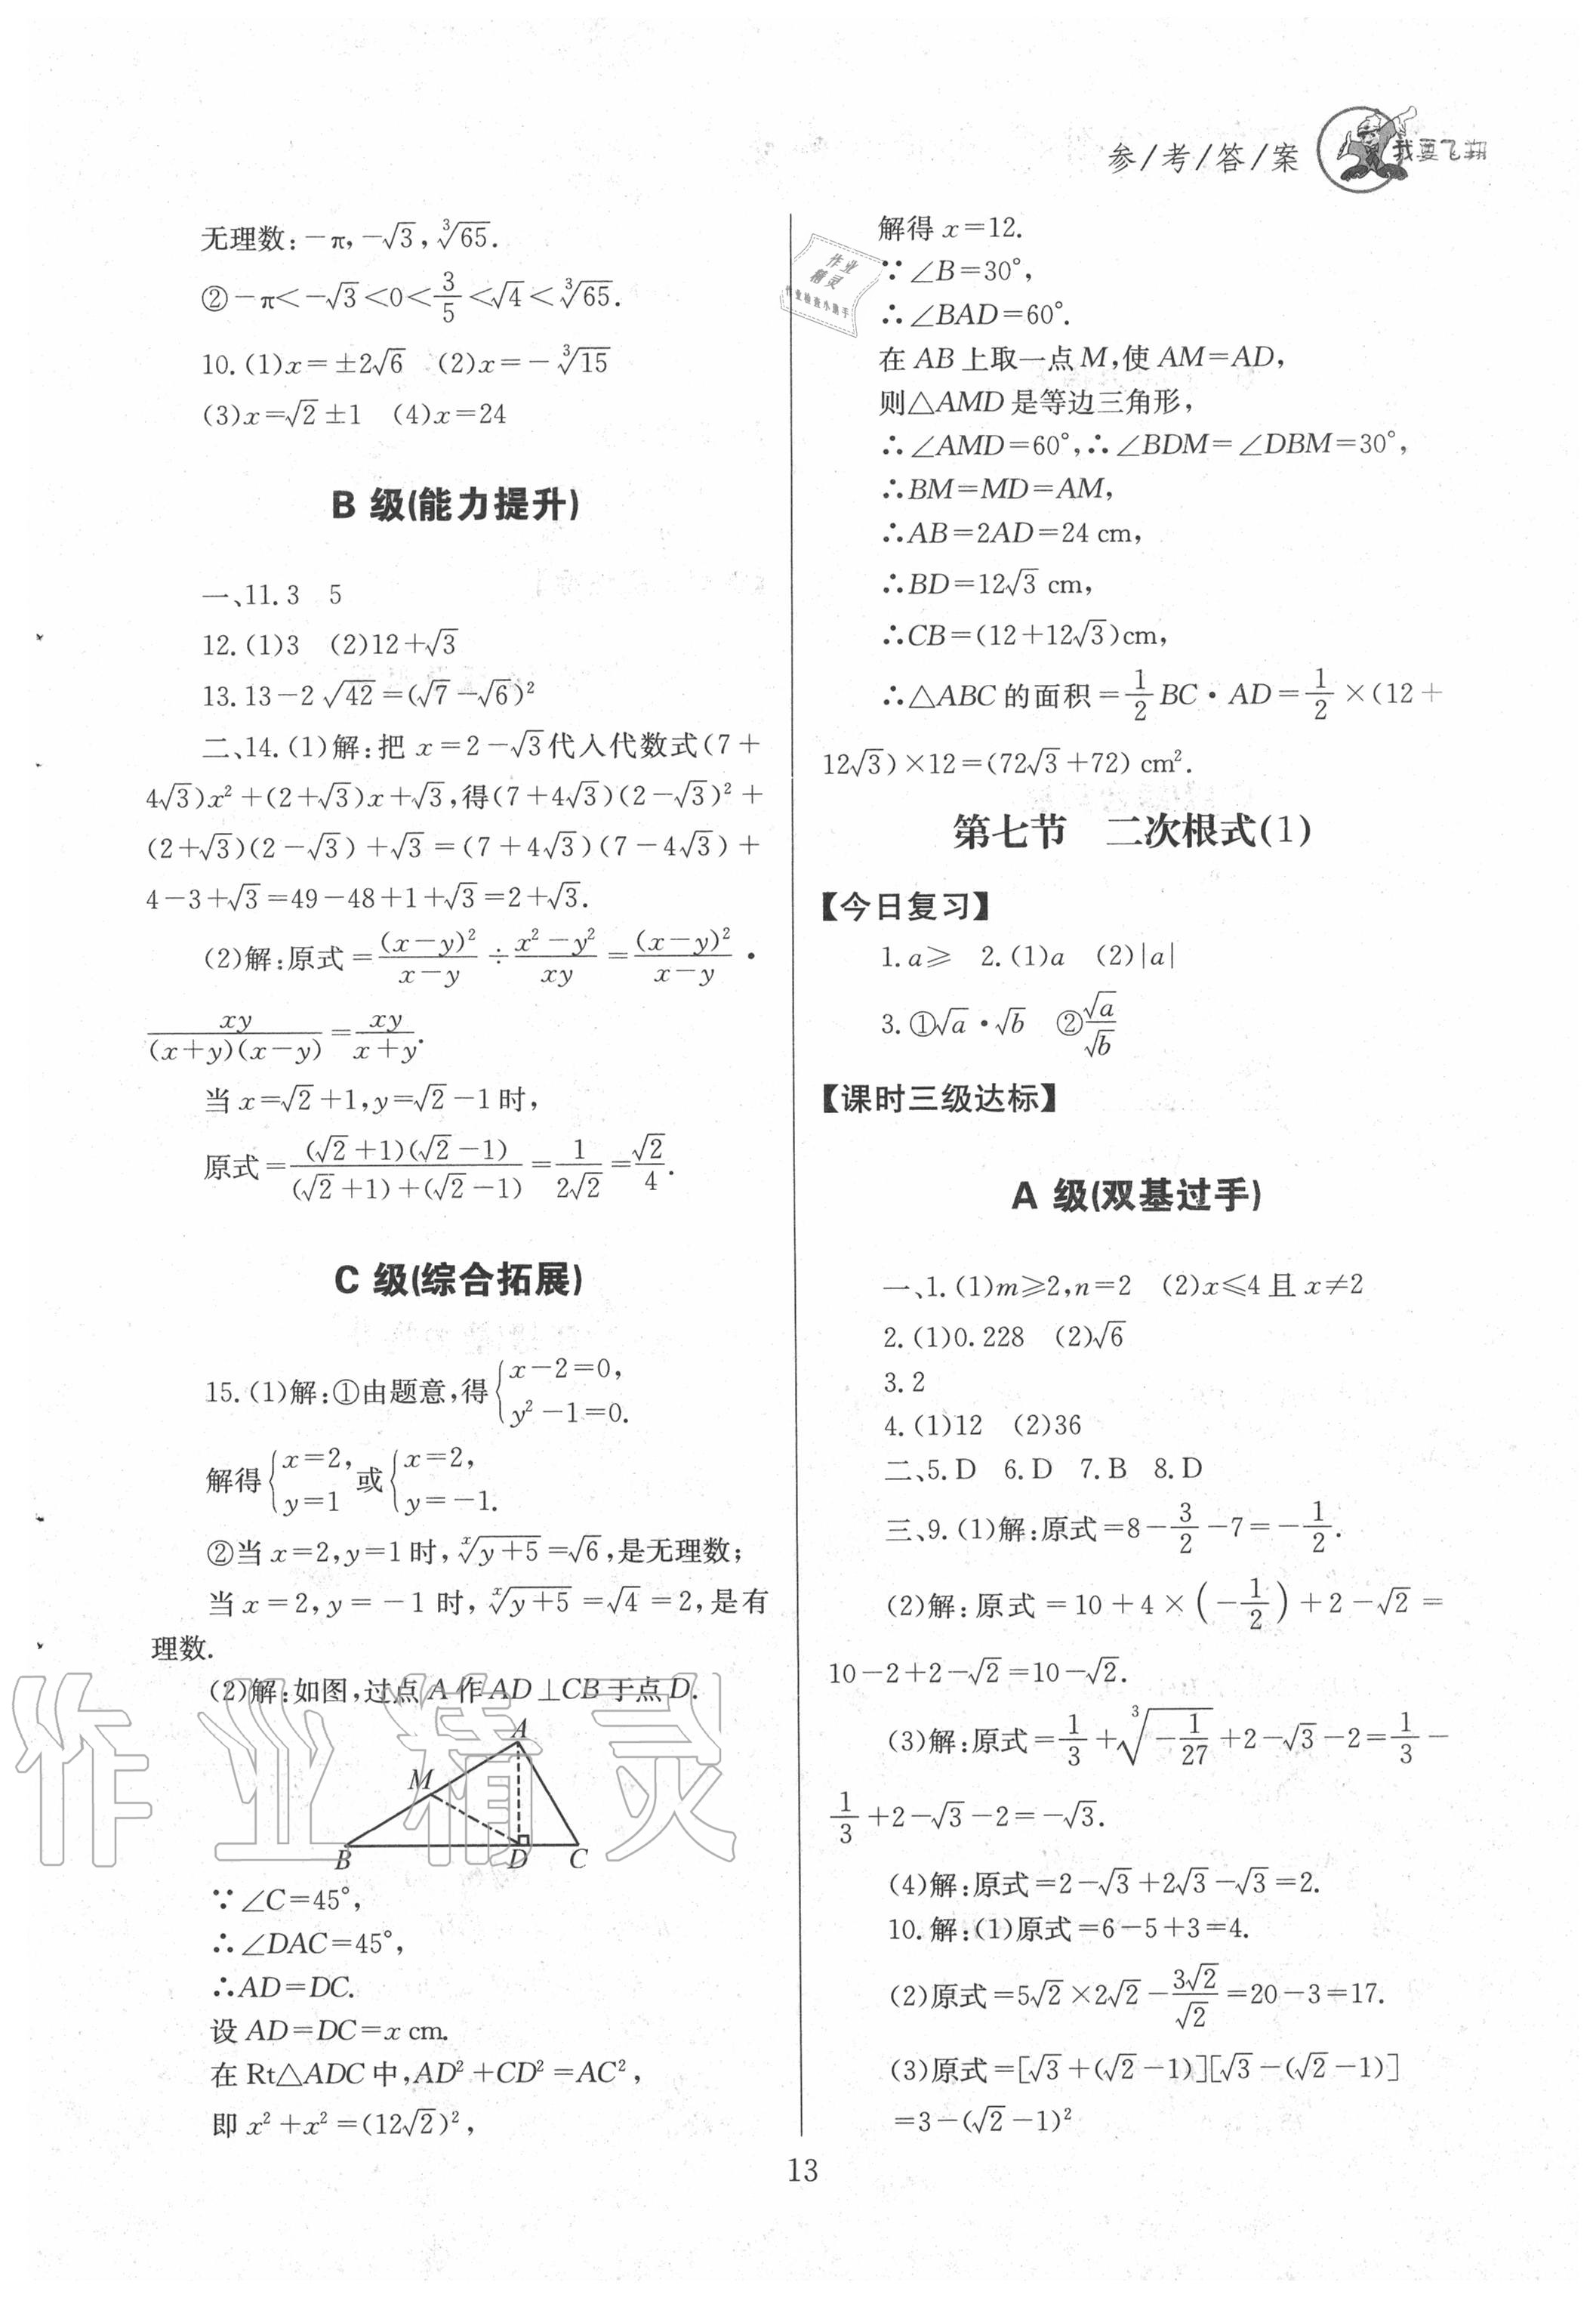 参/考/答/案
我要飞翔
无理数:－π,－√3,∛65.
②－π＜－√3＜0＜3/5＜√4＜∛65.
10.(1)x＝±2√6 (2)x＝－∛15
(3)x＝√2±1 (4)x＝24
B 级(能力提升)
一、11.3 5
12.(1)3 (2)12＋√3
13.13－2√42＝(√7－√6)²
二、14.(1)解:把 x＝2－√3代入代数式(7＋
4√3)x²＋(2＋√3)x＋√3,得(7＋4√3)(2－√3)²＋
(2＋√3)(2－√3)＋√3＝(7＋4√3)(7－4√3)＋
4－3＋√3＝49－48＋1＋√3＝2＋√3.
(2)解:原式＝(x－y)²/(x－y)÷(x²－y²)/xy＝(x－y)²/(x－y)·
xy/((x＋y)(x－y))＝xy/(x＋y).
当 x＝√2＋1,y＝√2－1时,
原式＝((√2＋1)(√2－1))/((√2＋1)＋(√2－1))＝1/(2√2)＝√2/4.
C 级(综合拓展)
15.(1)解:①由题意,得{x－2＝0, y²－1＝0.
解得{x＝2, y＝1 或{x＝2, y＝－1.
②当 x＝2,y＝1时,ˣ√(y＋5)＝√6,是无理数;
当 x＝2,y＝－1 时,ˣ√(y＋5)＝√4＝2,是有
理数.
(2)解:如图,过点 A 作 AD⊥CB 于点 D.
A
M
B D C
∵∠C＝45°,
∴∠DAC＝45°,
∴AD＝DC.
设 AD＝DC＝x cm.
在 Rt△ADC 中,AD²＋CD²＝AC²,
即 x²＋x²＝(12√2)²,
解得 x＝12.
∵∠B＝30°,
∴∠BAD＝60°.
在 AB 上取一点 M,使 AM＝AD,
则△AMD 是等边三角形,
∴∠AMD＝60°,∴∠BDM＝∠DBM＝30°,
∴BM＝MD＝AM,
∴AB＝2AD＝24 cm,
∴BD＝12√3 cm,
∴CB＝(12＋12√3)cm,
∴△ABC 的面积＝1/2 BC·AD＝1/2×(12＋
12√3)×12＝(72√3＋72) cm².
第七节 二次根式(1)
【今日复习】
1.a≥ 2.(1)a (2)|a|
3.①√a·√b ②√a/√b
【课时三级达标】
A 级(双基过手)
一、1.(1)m≥2,n＝2 (2)x≤4 且 x≠2
2.(1)0.228 (2)√6
3.2
4.(1)12 (2)36
二、5.D 6.D 7.B 8.D
三、9.(1)解:原式＝8－3/2－7＝－1/2.
(2)解:原式＝10＋4×(－1/2)＋2－√2＝
10－2＋2－√2＝10－√2.
(3)解:原式＝1/3＋∛(－1/27)＋2－√3－2＝1/3－
1/3＋2－√3－2＝－√3.
(4)解:原式＝2－√3＋2√3－√3＝2.
10.解:(1)原式＝6－5＋3＝4.
(2)原式＝5√2×2√2－3√2/√2＝20－3＝17.
(3)原式＝[√3＋(√2－1)][√3－(√2－1)]
＝3－(√2－1)²
13
作业
精灵
作业检查小助手
作业精灵